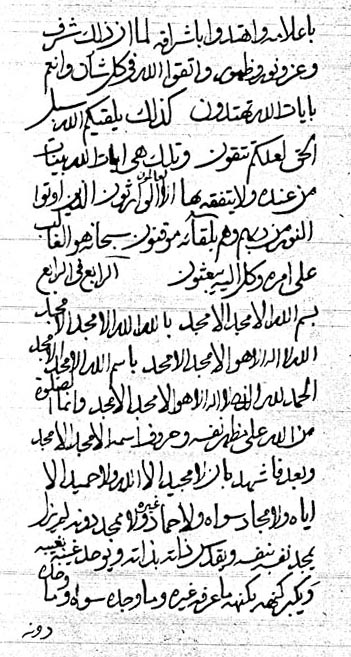 باعلامه واهتدوا باشراقه لما اراد لك شرف
وعز ونور وظهور واتقوا الله فی كل شأن وانتم
بايات الله تهتدون كذلك يلقيكم الله سبل
الحق لعلكم تتقون وتلك هی ايات الله بينات
من عنده ولا يتفقه بها الا العالمون الوارثون الذين اوتوا
النور من ربهم وهم بلقائه موقنون سبحانه هو الغالب
علی امره وكل اليه يبعثون الرابع فی الرابع
بسم الله الامجد الامجد بالله الله الامجد الامجد
الله لا اله الا هو الامجد الامجد باسم الله الامجد الامجد
الحمد لله الذی لا اله الا هو الامجد الامجد وانما الصلوة
من الله علی مظهر نفسه وحروف اسمه الامجد الامجد
وبعد فاشهد بان لا مجيد الا الله ولا حميد الا
اياه ولا امجاد سواه ولا احماد غيره ولا امجد دونه لم يزل
يمجد نفسه بنفسه ويقدس ذاته بذاته ويوحد غيبه بغيبه
ويكبر كنهه بكنهه ما عرفه غيره وما وحده سواه وما وحده
دونه